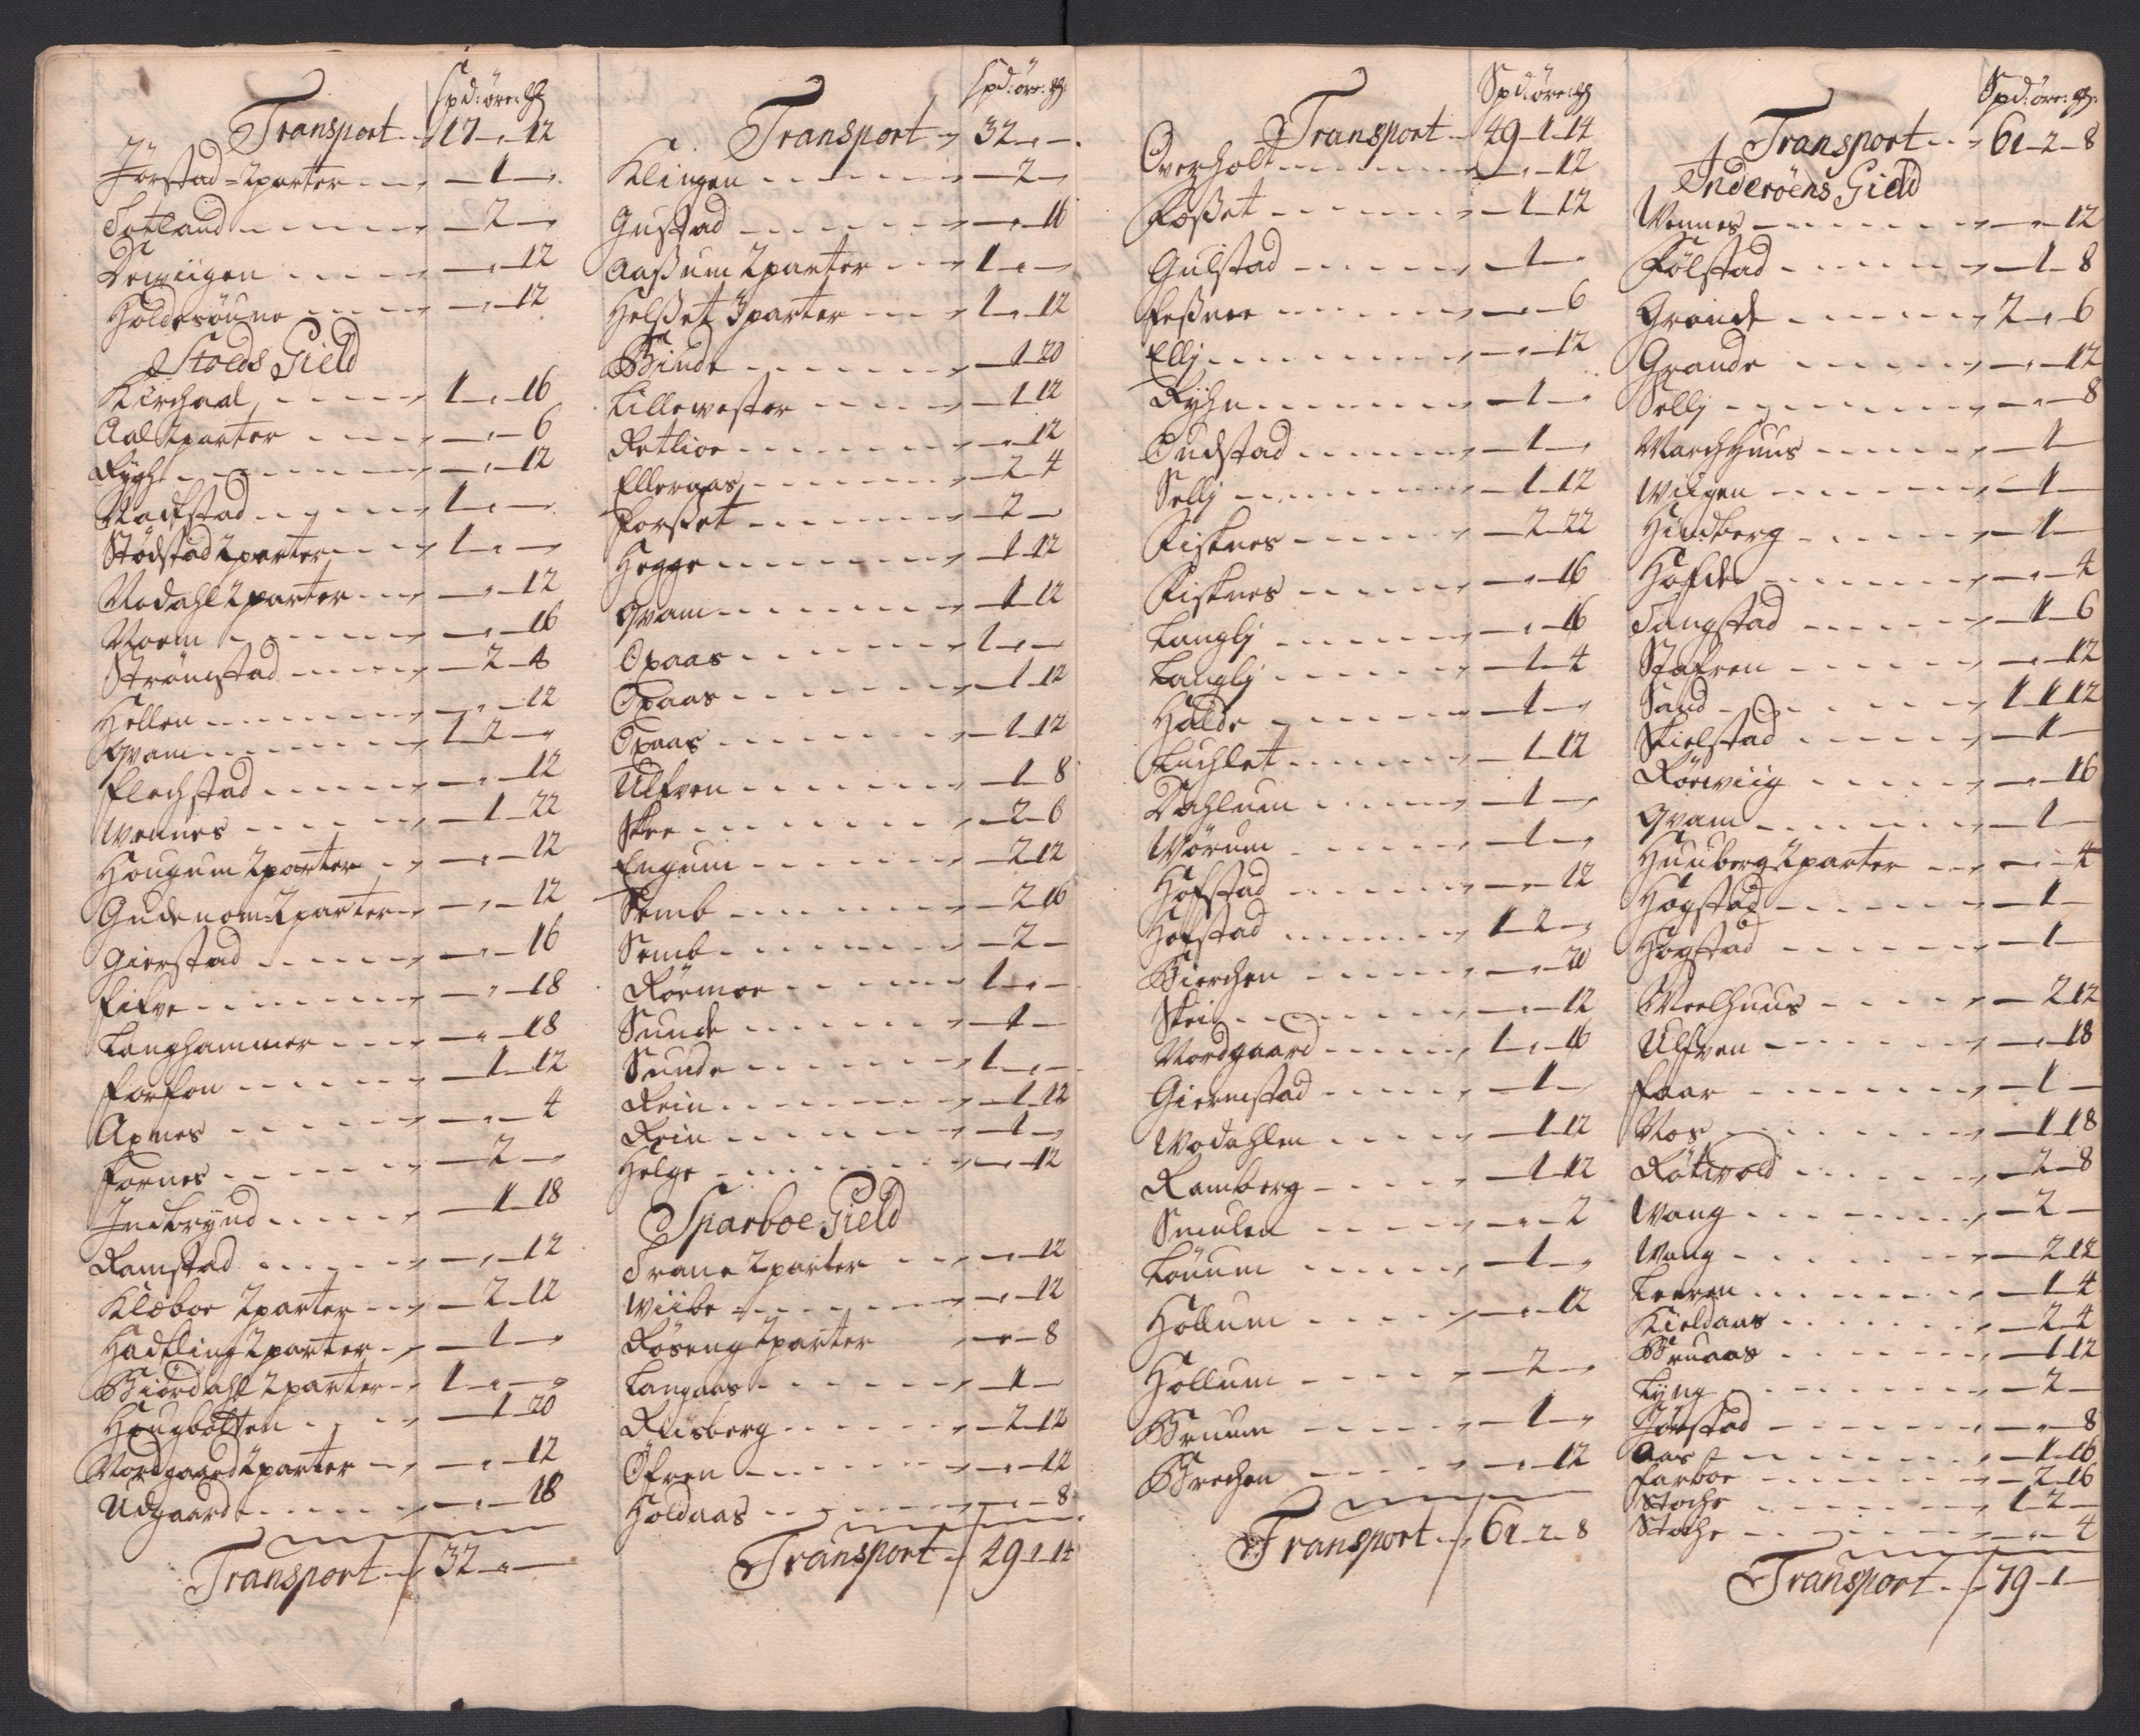 Spd: øre: 
Transport - 17 - " - 12
Jørstad - 2 parter - 1 -
Totland - 2 -
Devviigen - " - 12
Holdesøune - " - 12
Stoeds Gield
Kirchaal 1 - " - 16
Aal 2 parter - " - 6
Rygh - " - 12
Nachstad 1 - " -
Stødstad 2 parter 1 - " -
Nodahl 2 parter - " - 12
Noem - " - 16
Strömstad - 2 - 8
Hellen - " - 12
Qvam 1 - 2 -
Flechstad - " - 12
Wennes - 1 - 22
Hougum 2 parter - " - 12
Gudenom 2 parter - " - 12
Gierstad - " - 16
Fifve - " - 18
Langhammer - " - 18
Forfon - 1 - 12
Apnes - " - 4
Fornes - 2 -
Indbrynd - 1 - 18
Ramstad - " - 12
Klæboe 2 parter - 2 - 12
Hadtling 2 parter - 1 -
Biördahl 2 parter 1 - " -
Hougbolten - 1 - 20
Nordgaard 2 parter - " - 12
Udgaard - " - 18
Transport - 32 - " -
Spd: øre: 
Transport - 32 - " -
Klingen - 2 -
Gustad - " - 16
Aassum 2 parter 1 - " -
Helsset 3 parter 1 - " - 12
Binde - 1 - 20
Lillevester - 1 - 12
Retlioe - " - 12
Elleraas - 2 - 4
Forsset - 2 -
Hegge - 1 - 12
Qvam - 1 - 12
Opaas 1 - " -
Opaas - 1 - 12
Opaas - 1 - 12
Ulfven - 1 - 8
Skee - 2 - 6
Engum - 2 - 12
Semb - 2 - 16
Semb - 2 -
Röemoe 1 - " -
Sunde - 1 -
Sunde 1 - " -
Rein - 1 - 12
Rein - 1 -
Helge - " - 12
Sparboe Gield
Trane 2 parter - " - 12
Wiibe - " - 12
Röseng 2 parter - " - 8
Langaas - 1 -
Riisberg - 2 - 12
Öfren - " - 12
Holdaas - " - 8
Transport - 49 - 1 - 14
Spd: øre: 
Transport - 49 - 1 - 14
Overholt - " - 12
Fosset - 1 - 12
Gulstad - 1 -
Fessnee - " - 6
Ellj - " - 12
Ryhn - 1 -
Oudstad - 1 -
Sellj - 1 - 12
Fisknes - 2 - 22
Fisknes - " - 16
Langlj - " - 16
Langlj - 1 - 4
Halde - 1 -
Luchlet - 1 - 12
Dahlum - 1 -
Wörum - 1 -
Hofstad - " - 12
Hofstad 1 - 2 -
Bierchen - " - 20
Skei - " - 12
Nordgaard 1 - " - 16
Giermstad - 1 -
Wodahlen - 1 - 12
Ramberg - 1 - 12
Smulen - " - 2
Lönum - 1 -
Hollum - " - 12
Hollum - 2 -
Bruum - 1 -
Brechen - " - 12
Transport - 61 - 2 - 8
Spd: øre: 
Transport - 61 - 2 - 8
Inderöens Gield
Wennes - " - 12
Følstad - 1 - 8
Grande 2 - " - 6
Grande - " - 12
Sellj - " - 8
Marchhuus - 1 -
Wiigen - 1 -
Hindberg - 1 -
Hofde - " - 4
Sangstad - 1 - 6
Stafren - " - 12
Sand 1 - 1 - 12
Skielstad - 1 -
Röeviig - " - 16
Qvam - 1 -
Huuberg 2 parter - " - 4
Hogstad - 1 -
Hogstad - 1 -
Meelhuus - 2 - 12
Ulfven - " - 18
Faar - 1 -
Nos - 1 - 18
Rötvold - 2 - 8
Wang - 2 -
Wang - 2 - 12
Leeren - 1 - 4
Kieldaas - 2 - 4
Bruaas - 1 - 12
Lyng - 2 -
Jörstad - " - 8
Aas - 1 - 16
Farboe - 2 - 16
Stoche 1 - 2 -
Stoche - " - 4
Transport - 79 - 1 -